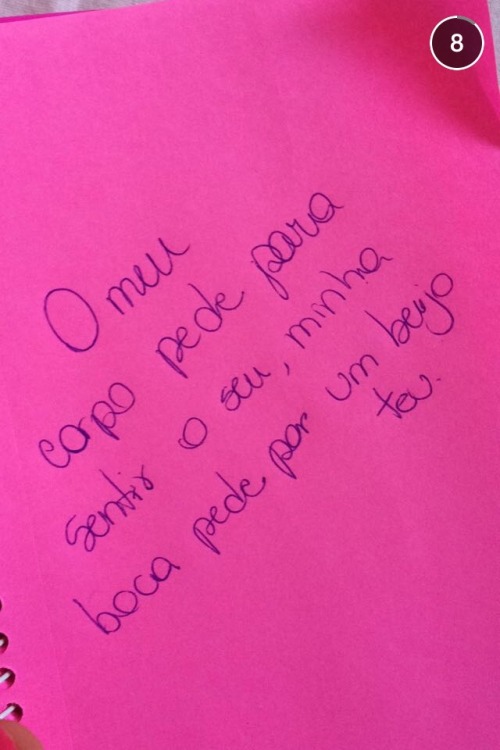 8
O meu
corpo pede para
sentir o seu, minha
boca pede por um beijo
teu.